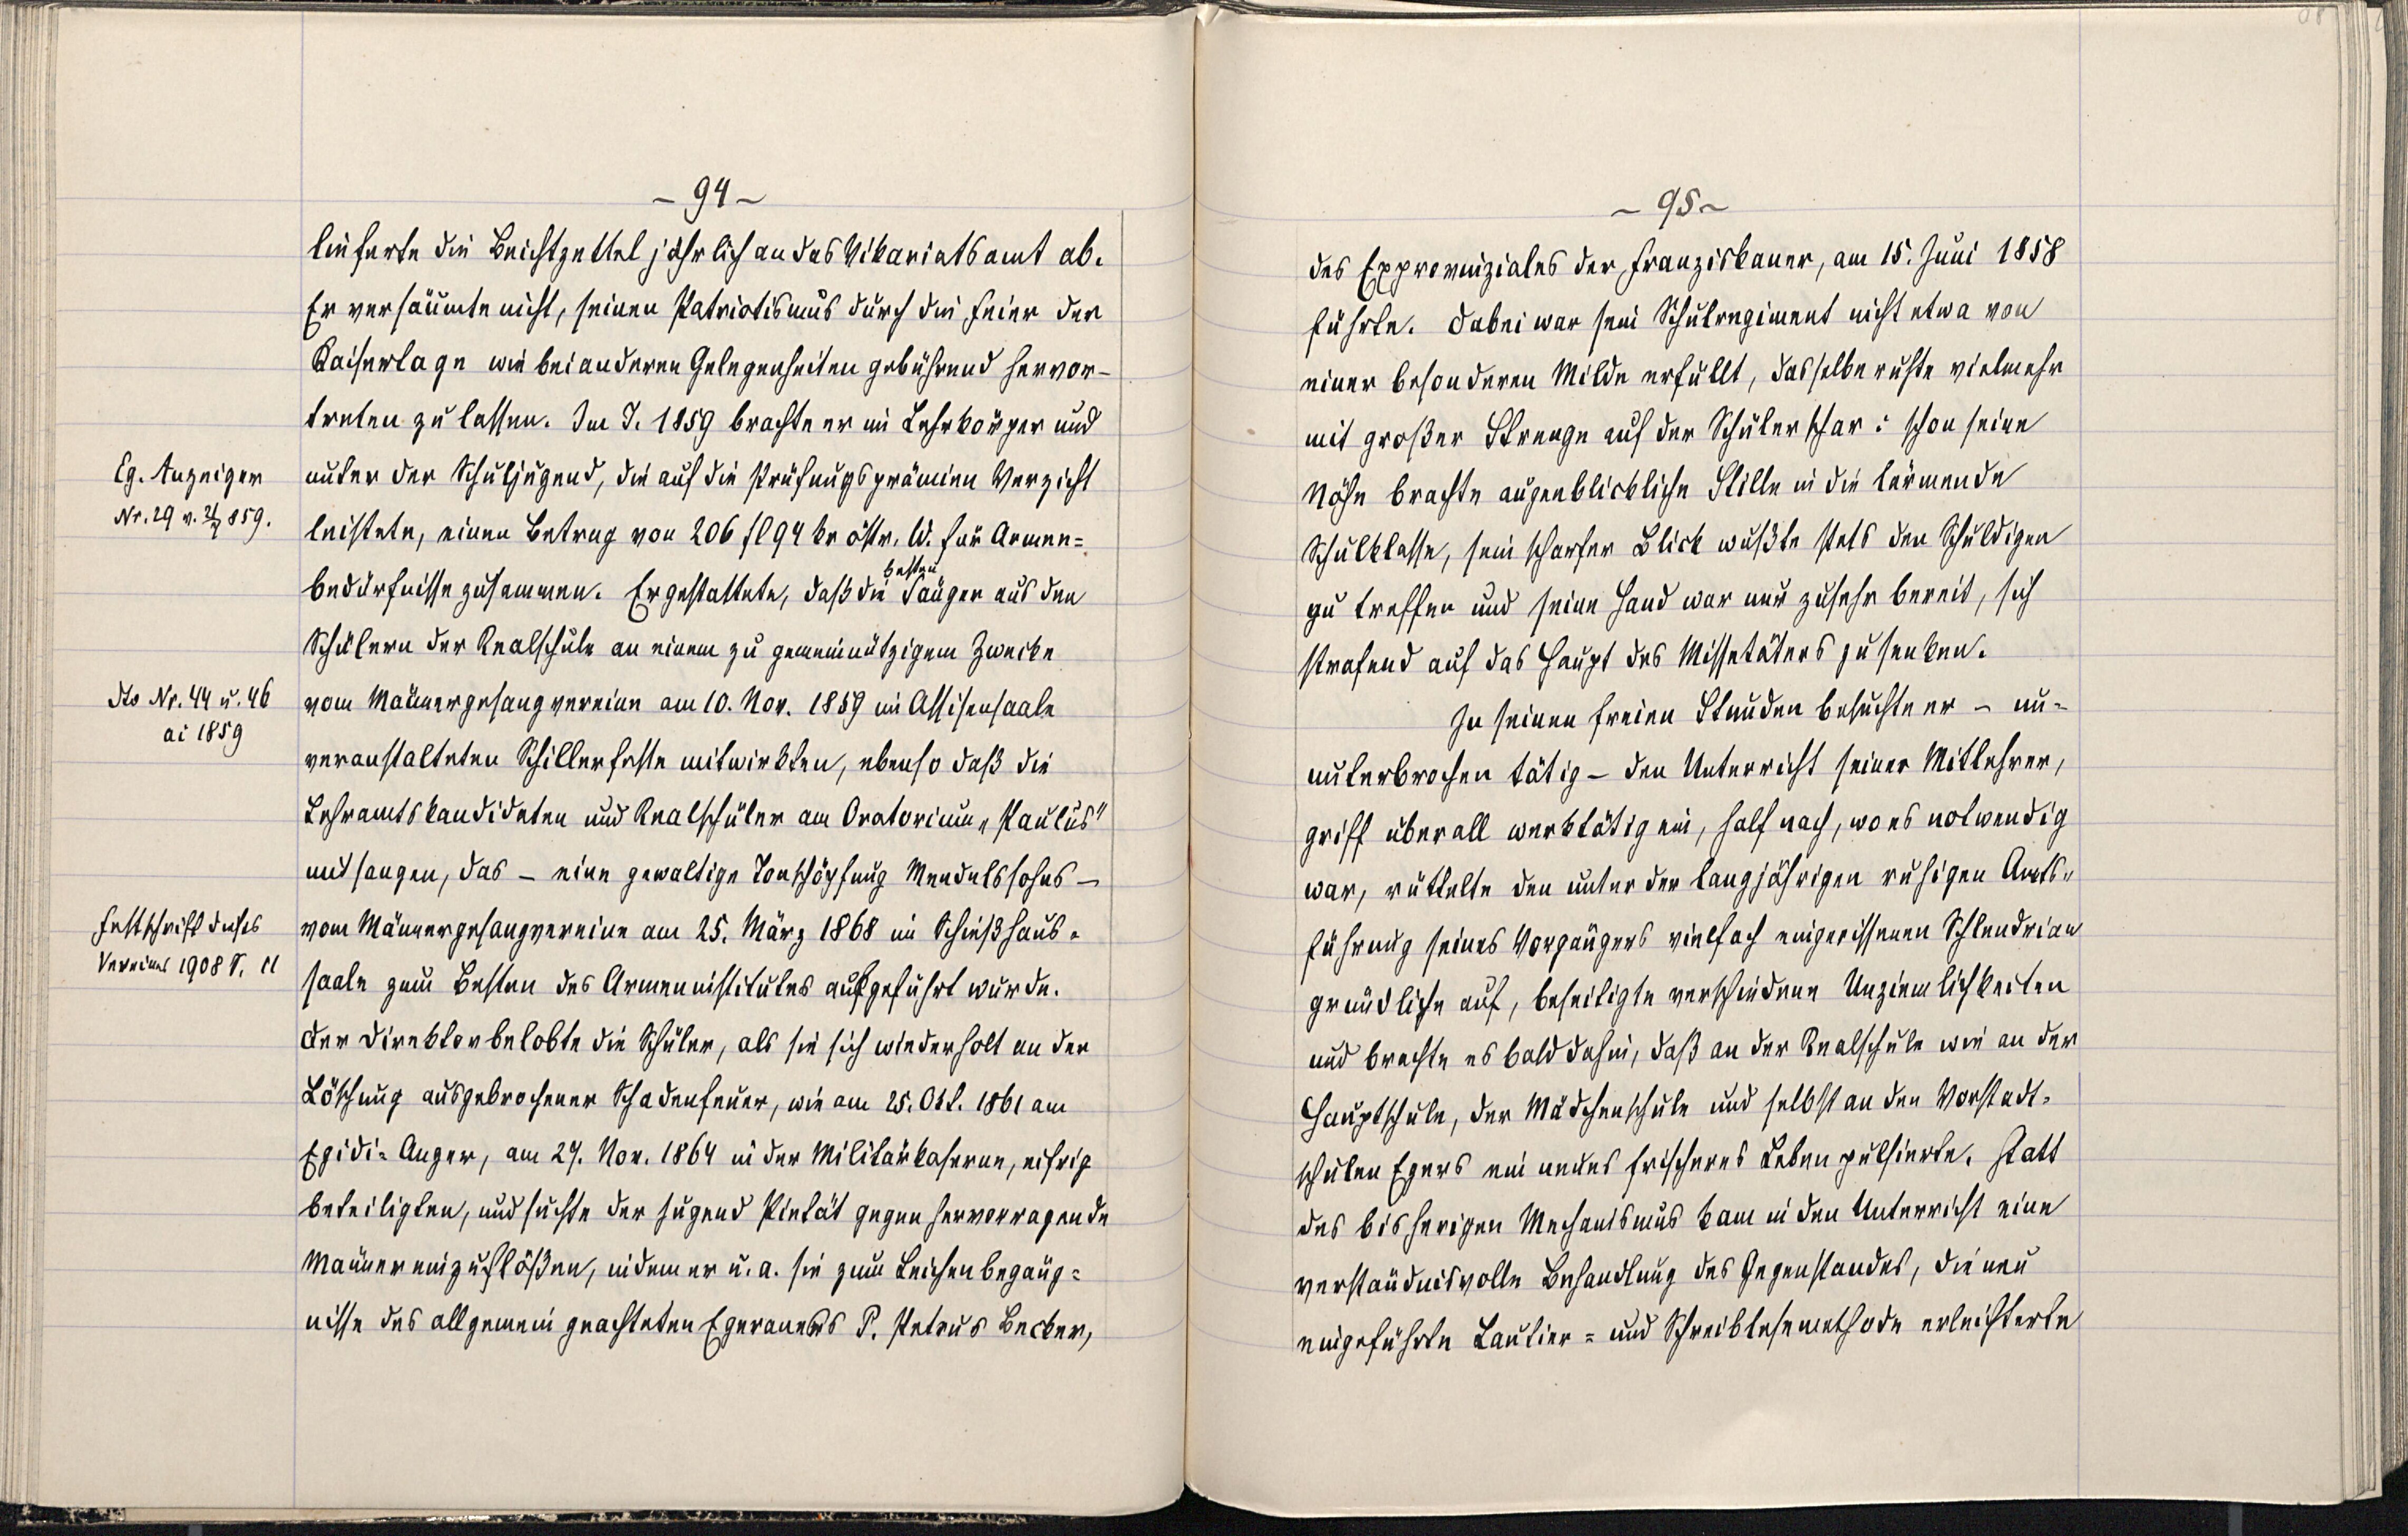 - 94 -
lieferte die Beichtzettel jährlich an das Vikariatsamt ab.
Er versäumte nicht, seinen Patriotismus durch die Feier der
Kaisertage wie bei anderen Gelegenheiten gebührend hervor-
treten zu lassen. Im J. 1859 brachte er im Lehrkörper und
Eg. Anzeiger
Nr. 29 v. 21/7 859.
unter der Schuljugend, die auf die Prüfungsprämien Verzicht
leistete, einen Betrag von 206 fl 94 kr östr. W. für Armen=
bedürfnisse zusammen. Er gestattete, daß die besten Sänger aus den
Schülern der Realschule an einem zu gemeinnützigem Zwecke
dto Nr. 44 u. 46
ai 1859
vom Männergesangvereine am 10. Nov. 1859 im Assisensaale
veranstalteten Schillerfeste mitwirkten, ebenso daß die
Lehramtskandidaten und Realschüler am Oratorium „Paulus"
mitsangen, das – eine gewaltige Tonschöpfung Mendelssohns –
Festschrift dieses
Vereines 1908 S. 11
vom Männergesangvereine am 25. März 1868 im Schießhaus-
saale zum Besten des Armeninstitutes aufgeführt wurde.
Der Direktor belobte die Schüler, als sie sich wiederholt an der
Löschung ausgebrochener Schadenfeuer, wie am 25. Okt. 1861 am
Egidi= Anger, am 27. Nov. 1864 in der Militärkaserne, eifrig
beteiligten, und suchte der Jugend Pietät gegen hervorragende
Männer einzuflößen, indem er u. a. sie zum Leichenbegäng=
nisse des allgemein geachteten Egeraners P. Petrus Becker,
- 95 -
des Exprovinziales der Franziskaner, am 15. Juni 1858
führte. Dabei war sein Schulregiment nicht etwa von
einer besonderen Milde erfüllt, dasselbe ruhte vielmehr
mit großer Strenge auf der Schülerschar: schon seine
Nähe brachte augenblickliche Stille in die lärmende
Schulklasse, sein scharfer Blick wußte stets den Schuldigen
zu treffen und seine Hand war nur zusehr bereit, sich
strafend auf das Haupt des Missetäters zu senken.
In seinen freien Stunden besuchte er – un-
unterbrochen tätig – den Unterricht seiner Mitlehrer,
griff überall werktätig ein, half nach, wo es notwendig
war, rüttelte den unter der langjährigen ruhigen Amts-
führung seines Vorgängers vielfach eingerissenen Schlendrian
gründliche auf, beseitigte verschiedene Unziemlichkeiten
und brachte es bald dahin, daß an der Realschule wie an der
Hauptschule, der Mädchenschule und selbst an den Vorstadt-
schulen Egers ein neues frischeres Leben pulsierte. Statt
des bisherigen Mechanismus kam in den Unterricht eine
verständnisvolle Behandlung des Gegenstandes, die neu
eingeführte Lautier= und Schreiblesemethode erleichterte